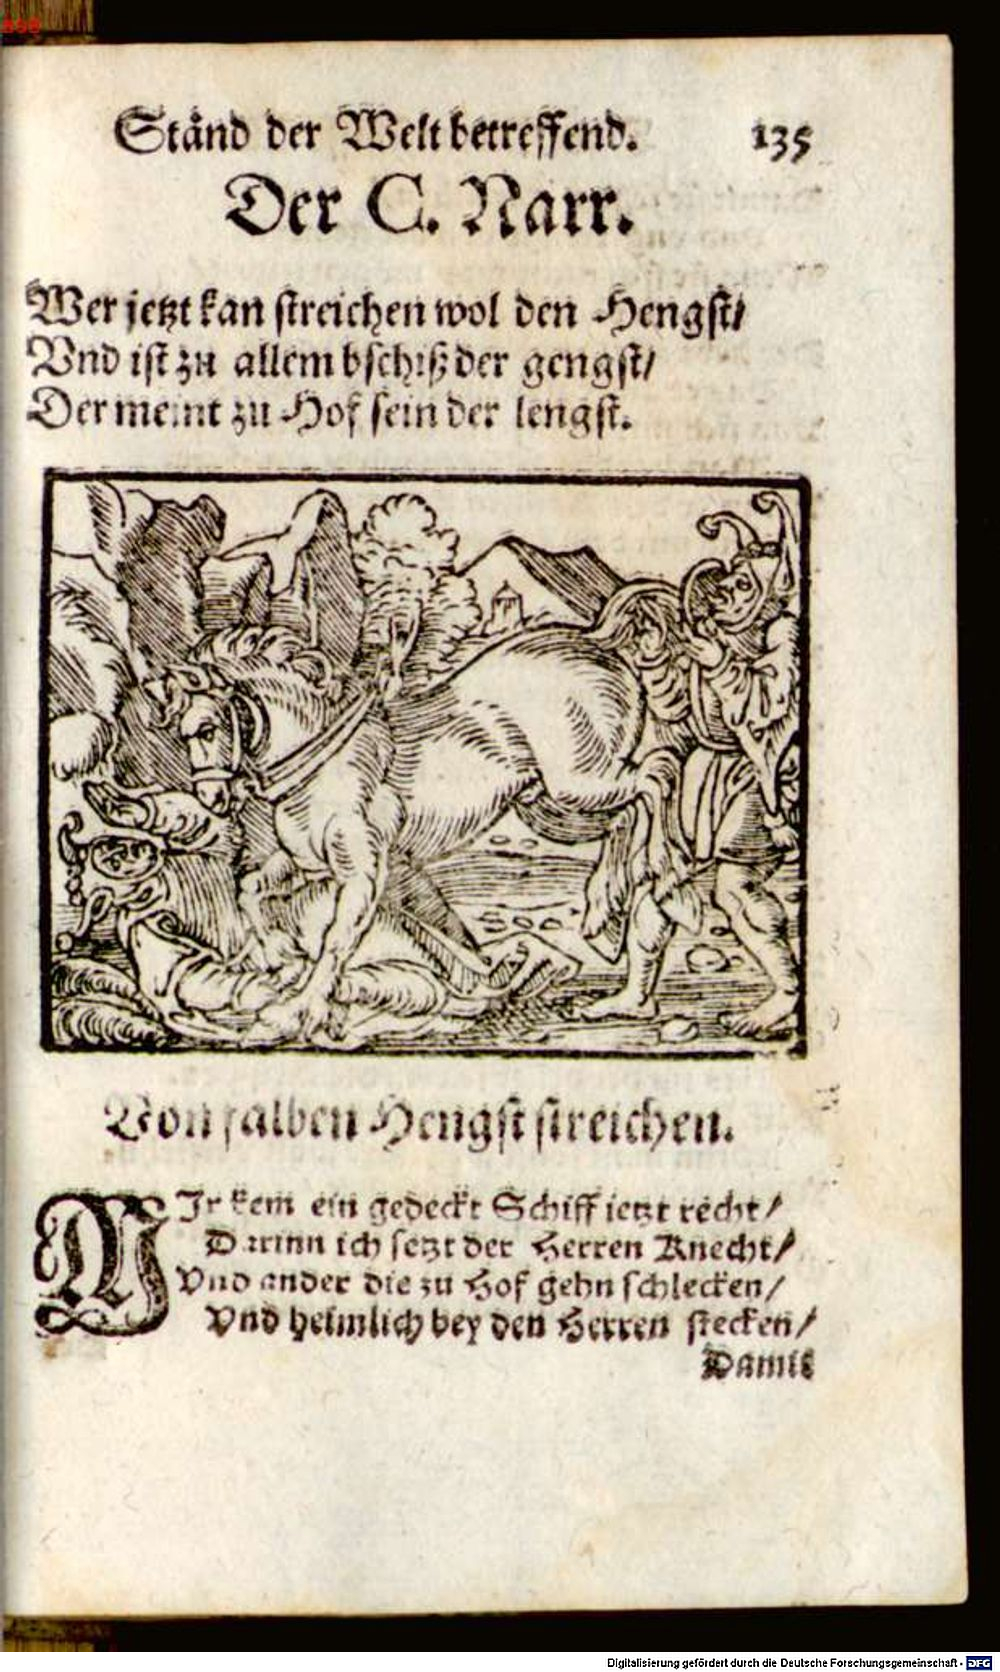 Ständ der Welt betreffend. 135
Der C. Narr.
Wer jetzt kan streichen wol den Hengst/
Vnd ist zu allem bschiß der gengst/
Der meint zu Hof sein der lengst.
Von falben Hengst streichen.
MJr kem ein gedeckt Schiff ietzt recht/
Darinn ich setzt der Herren Knecht/
Vnd ander die zu Hof gehn schlecken/
Vnd heimlich bey den Herren stecken/
Damit
Digitalisierung gefördert durch die Deutsche Forschungsgemeinschaft - DFG